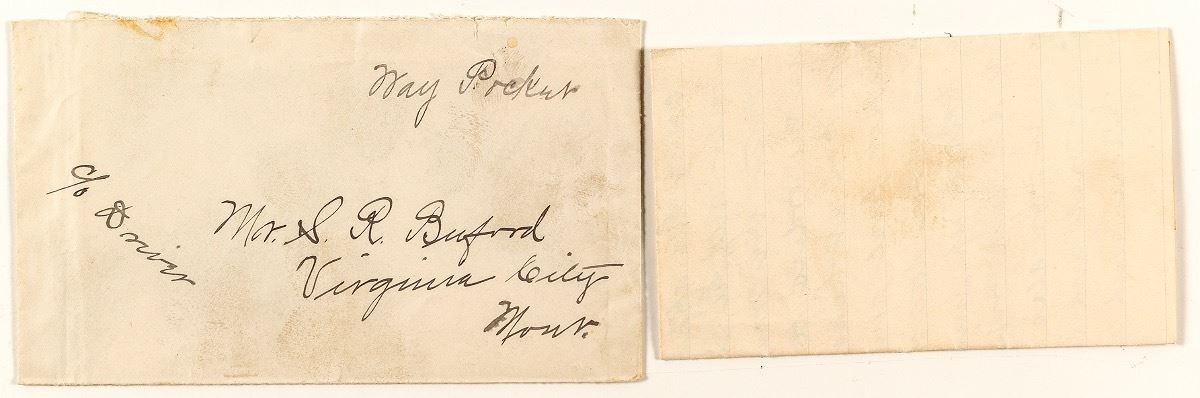 Way Pocket
c/o Driver
Mr. S. R. Buford
Virginia City
Mont.